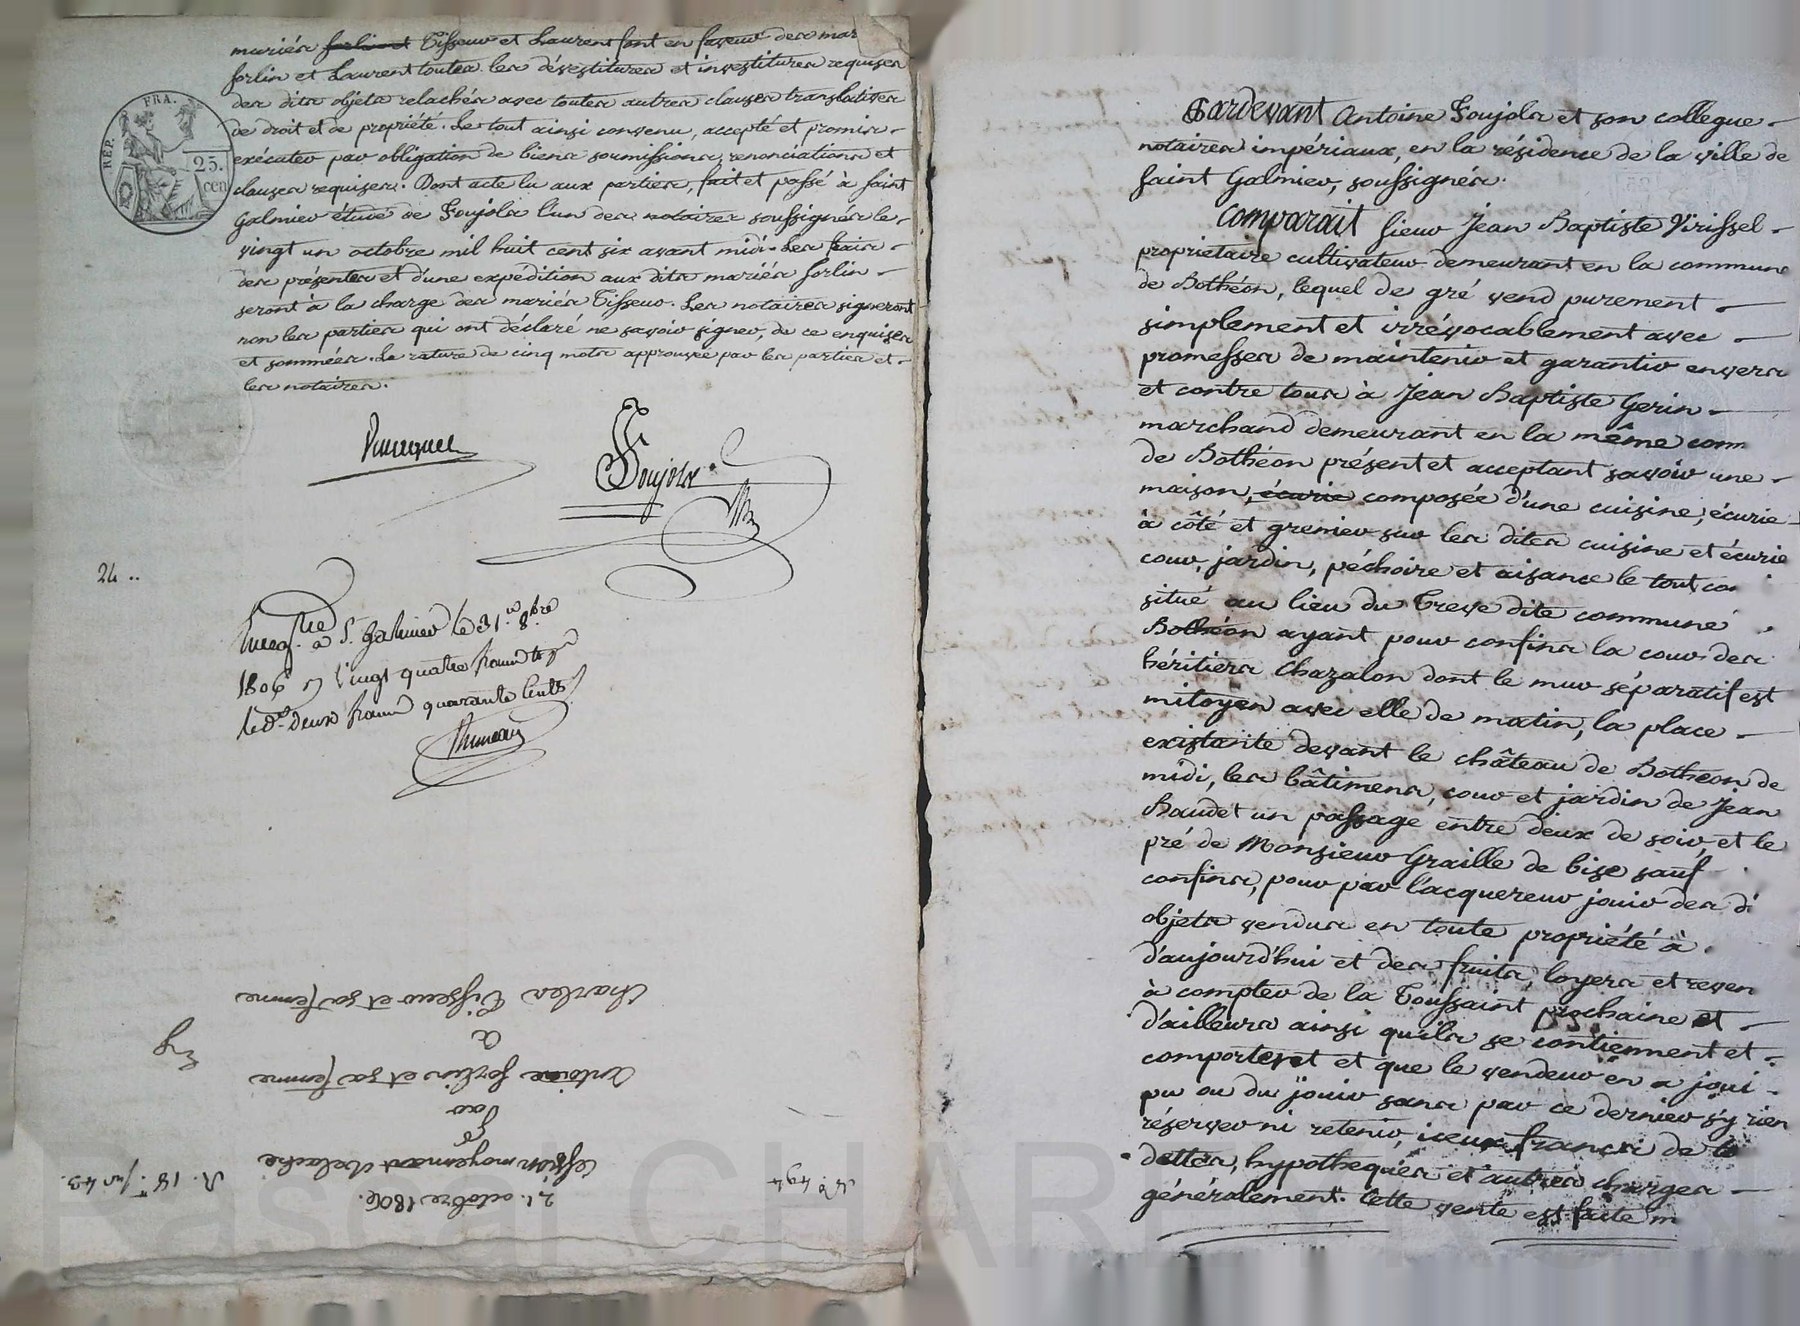 mariés forlin et Tisseur et Laurent font en faveur des mar
forlin et Laurent toutes les dévestitures et investitures requises
des dits objets relachés avec toutes autres clauses translatives
de droit et de propriété. Le tout ainsi convenu, accepté et promis
exécuter par obligation de biens soumissions, renonciations et
clauses requises. Dont acte lu aux parties, fait et passé à Saint
Galmier étude de Foujols l'un des notaires soussignés le
vingt un octobre mil huit cent six avant midi. Les frais
des présentes et d'une expédition aux dits mariés forlin
seront à la charge des mariés Tisseur. Les notaires signeront
non les parties qui ont déclaré ne savoir signer, de ce enquises
et sommées. La rature de cinq mots approuvée par les parties et
les notaires.
REP. FRA.
25.
cen
Foujols
24 ..
Enregtré à St. Galmier le 31 8bre
1806 vingt quatre francs
deux francs quarante cents
21. octobre 1806.
Cession moyennant relache
Par
Antoine forlin et sa femme
à
Charles Tisseur et sa femme
No. 494
Pardevant Antoine Foujols et son collegue
notaires impériaux, en la résidence de la ville de
Saint Galmier, soussignés.
Comparait Sieur Jean Baptiste Virissel
propriétaire cultivateur demeurant en la commune
de Bothéon, lequel de gré vend purement
simplement et irrévocablement avec
promesses de maintenir et garantir envers
et contre tous à Jean Baptiste Gerin
marchand demeurant en la même com
de Bothéon présent et acceptant savoir une
maison, écurie composée d'une cuisine, écurie
à côté et grenier sur les dites cuisine et écurie
cour, jardin, péchoire et aisance le tout con
situé au lieu du Treve dite commune
Bothéon ayant pour confins la cour des
héritiers Chazalon dont le mur séparatif est
mitoyen avec elle de matin, la place
existante devant le château de Bothéon de
midi, les bâtimens, cour et jardin de Jean
Baudet un passage entre deux de soir, et le
pré de Monsieur Graille de bise sauf
confins, pour par l'acquereur jouir des di
objets vendus en toute propriété à
d'aujourd'hui et des fruits, loyers et reven
à compter de la Toussaint prochaine et
d'ailleurs ainsi qu'ils se contiennent et
comportent et que le vendeur en a joui
pu ou du jouir sans par ce dernier s'y rien
réserver ni retenir, iceux francs de to
dettes, hypotheques et autres charges
généralement. Cette vente est faite m
Pascal CHARETRON